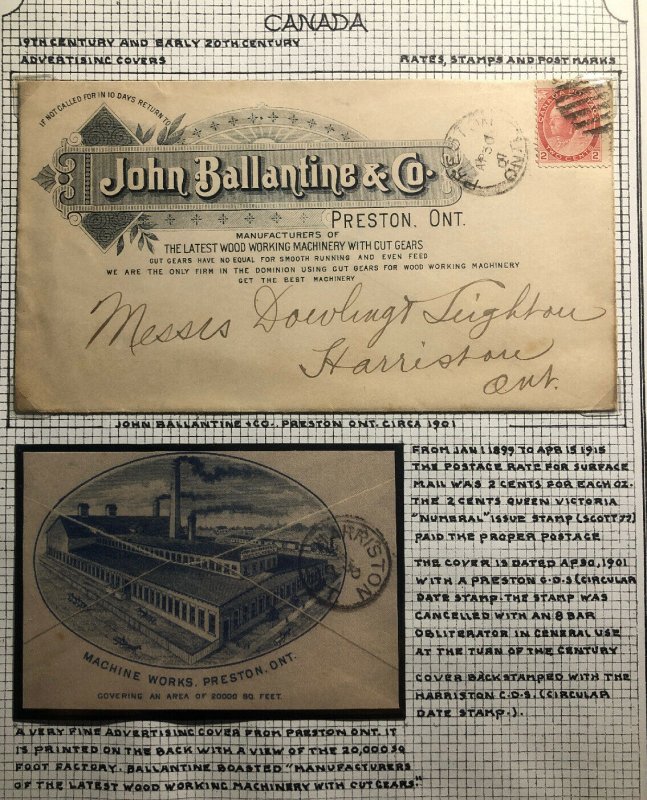 CANADA
19TH CENTURY AND EARLY 20TH CENTURY
ADVERTISING COVERS
RATES, STAMPS AND POST MARKS
IF NOT CALLED FOR IN 10 DAYS RETURN TO
John Ballantine & Co.
PRESTON, ONT.
MANUFACTURERS OF
THE LATEST WOOD WORKING MACHINERY WITH CUT GEARS
CUT GEARS HAVE NO EQUAL FOR SMOOTH RUNNING AND EVEN FEED
WE ARE THE ONLY FIRM IN THE DOMINION USING CUT GEARS FOR WOOD WORKING MACHINERY
GET THE BEST MACHINERY
PRESTON ONT
AP 30
01
2 CENTS 2
Messrs Dowling & Leighton
Harriston
Ont.
JOHN BALLANTINE + CO. PRESTON ONT. CIRCA 1901
FROM JAN 1 1899 TO APR 15 1915
THE POSTAGE RATE FOR SURFACE
MAIL WAS 2 CENTS FOR EACH OZ.
THE 2 CENTS QUEEN VICTORIA
"NUMERAL" ISSUE STAMP (SCOTT 77)
PAID THE PROPER POSTAGE
THE COVER IS DATED AP 30, 1901
WITH A PRESTON C.D.S (CIRCULAR
DATE STAMP. THE STAMP WAS
CANCELLED WITH AN 8 BAR
OBLITERATOR IN GENERAL USE
AT THE TURN OF THE CENTURY
COVER BACKSTAMPED WITH THE
HARRISTON C.D.S. (CIRCULAR
DATE STAMP.).
HARRISTON
MACHINE WORKS, PRESTON, ONT.
COVERING AN AREA OF 20000 SQ. FEET.
A VERY FINE ADVERTISING COVER FROM PRESTON ONT. IT
IS PRINTED ON THE BACK WITH A VIEW OF THE 20,000 SQ
FOOT FACTORY. BALLANTINE BOASTED "MANUFACTURERS
OF THE LATEST WOOD WORKING MACHINERY WITH CUT GEARS."